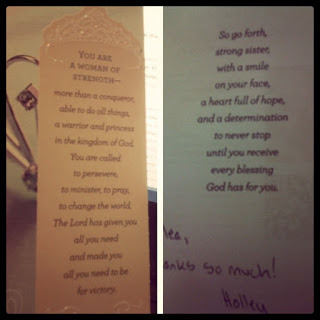 YOU ARE
A WOMAN OF
STRENGTH—
more than a conqueror,
able to do all things,
a warrior and princess
in the kingdom of God.
You are called
to persevere,
to minister, to pray,
to change the world.
The Lord has given you
all you need
and made you
all you need to be
for victory.
So go forth,
strong sister,
with a smile
on your face,
a heart full of hope,
and a determination
to never stop
until you receive
every blessing
God has for you.
so much!
Holley